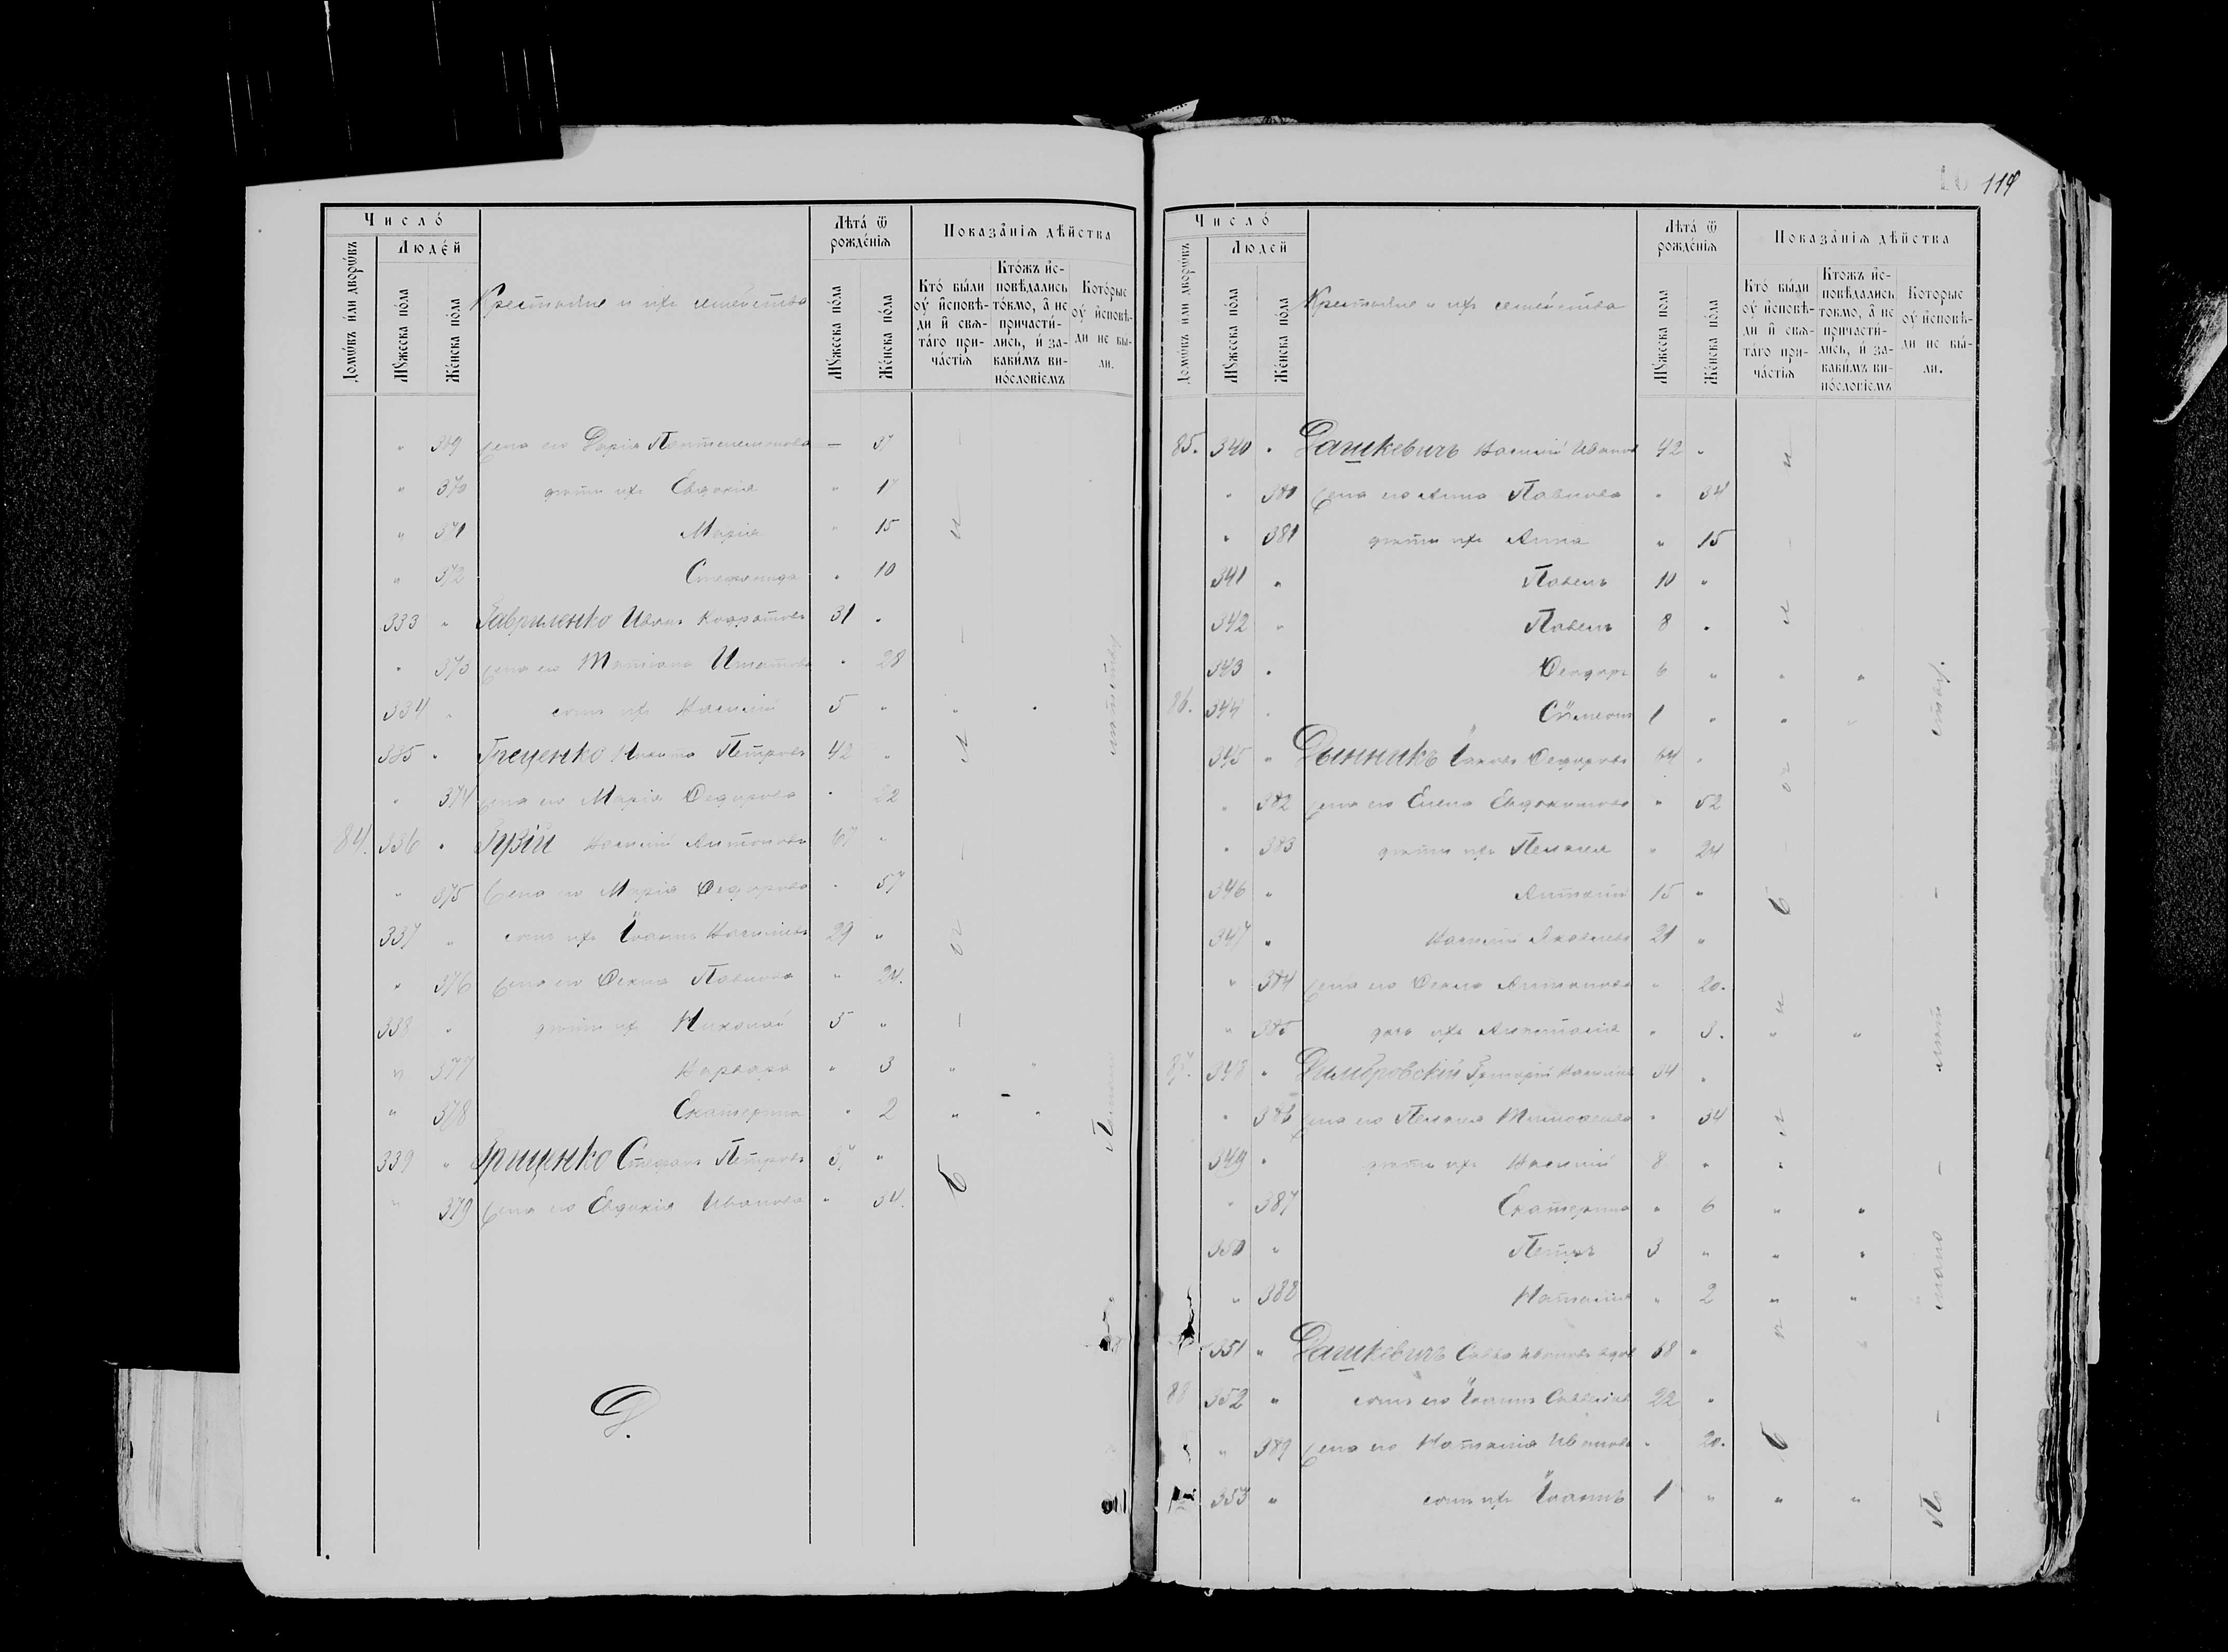 Число́
Людей
Домѡвъ или дворѡвъ
Мꙋжеска пола
Женска пола
Крестьяне и ихъ семейства
Лѣта ѿ рожденїѧ
Мꙋжеска пола
Женска пола
Показанїѧ дѣйства
Кто были оу исповѣди и свѧтаго причастїѧ
Ктожъ исповѣдались токмо, а не причастились, и за какимъ винословїемъ
Которые оу исповѣди не были.
" 369 жена его Дарія Пантелеимонова — 37
" 370 дѣти ихъ Евдокія " 17
" 371 Марія " 15
" 372 Стефанида " 10
333 " Гавриленко Иванъ 31 "
" 373 жена его Татіана Игнатова " 28
334 " сынъ ихъ Василій 5 "
335 " Никита Петровъ 42 "
" 374 жена его Марія Ѳедорова " 22
84. 336 " Гузій Василій Антоновъ 67 "
" 375 жена его Марія Ѳедорова " 57
337 " сынъ ихъ Іоаннъ Васильевъ 29 "
" 376 жена его Ѳекла Павлова " 24.
338 " дѣти ихъ Николай 5 "
" 377 Варвара " 3
" 378 Екатерина " 2
339 " Грищенко Стефанъ Петровъ 37 "
" 379 жена его Евдокія Иванова " 34.
Д.
119
Число́
Людей
Домѡвъ или дворѡвъ
Мꙋжеска пола
Женска пола
Крестьяне и ихъ семейства
Лѣта ѿ рожденїѧ
Мꙋжеска пола
Женска пола
Показанїѧ дѣйства
Кто были оу исповѣди и свѧтаго причастїѧ
Ктожъ исповѣдались токмо, а не причастились, и за какимъ винословїемъ
Которые оу исповѣди не были.
85. 340 " Дашкевичъ Василій Иванов 42 "
" 380 жена его Анна Павлова " 34
" 381 дѣти ихъ Анна " 15
341 " Павелъ 10 "
342 " Павелъ 8 "
343 " Ѳеодоръ 6 "
86. 344 " Сѵмеонъ 1 "
345 " Дынникъ Іаковъ Ѳедоровъ 54 "
" 382 жена его Елена Евдокимова " 52
" 383 дѣти ихъ Пелагея " 24
346 " Антоній 15 "
347 " Василій Яковлевъ 21 "
" 384 жена его Ѳекла Антонова " 20.
" 385 дочь ихъ Анастасія " 3.
87. 348 " Димбровскій Григорій Васильев 34 "
" 386 жена его Пелагея Тимофеева " 34
349 " дѣти ихъ Василій 8 "
" 387 Екатерина " 6
350 " Петръ 3 "
" 388 Наталія " 2
351 " Дашкевичъ Савва Ивановъ вдов 58 "
88 352 " сынъ его Іоаннъ Саввинъ 22 "
" 389 жена его Наталія Иванова " 20.
353 " сынъ ихъ Іоаннъ 1 "